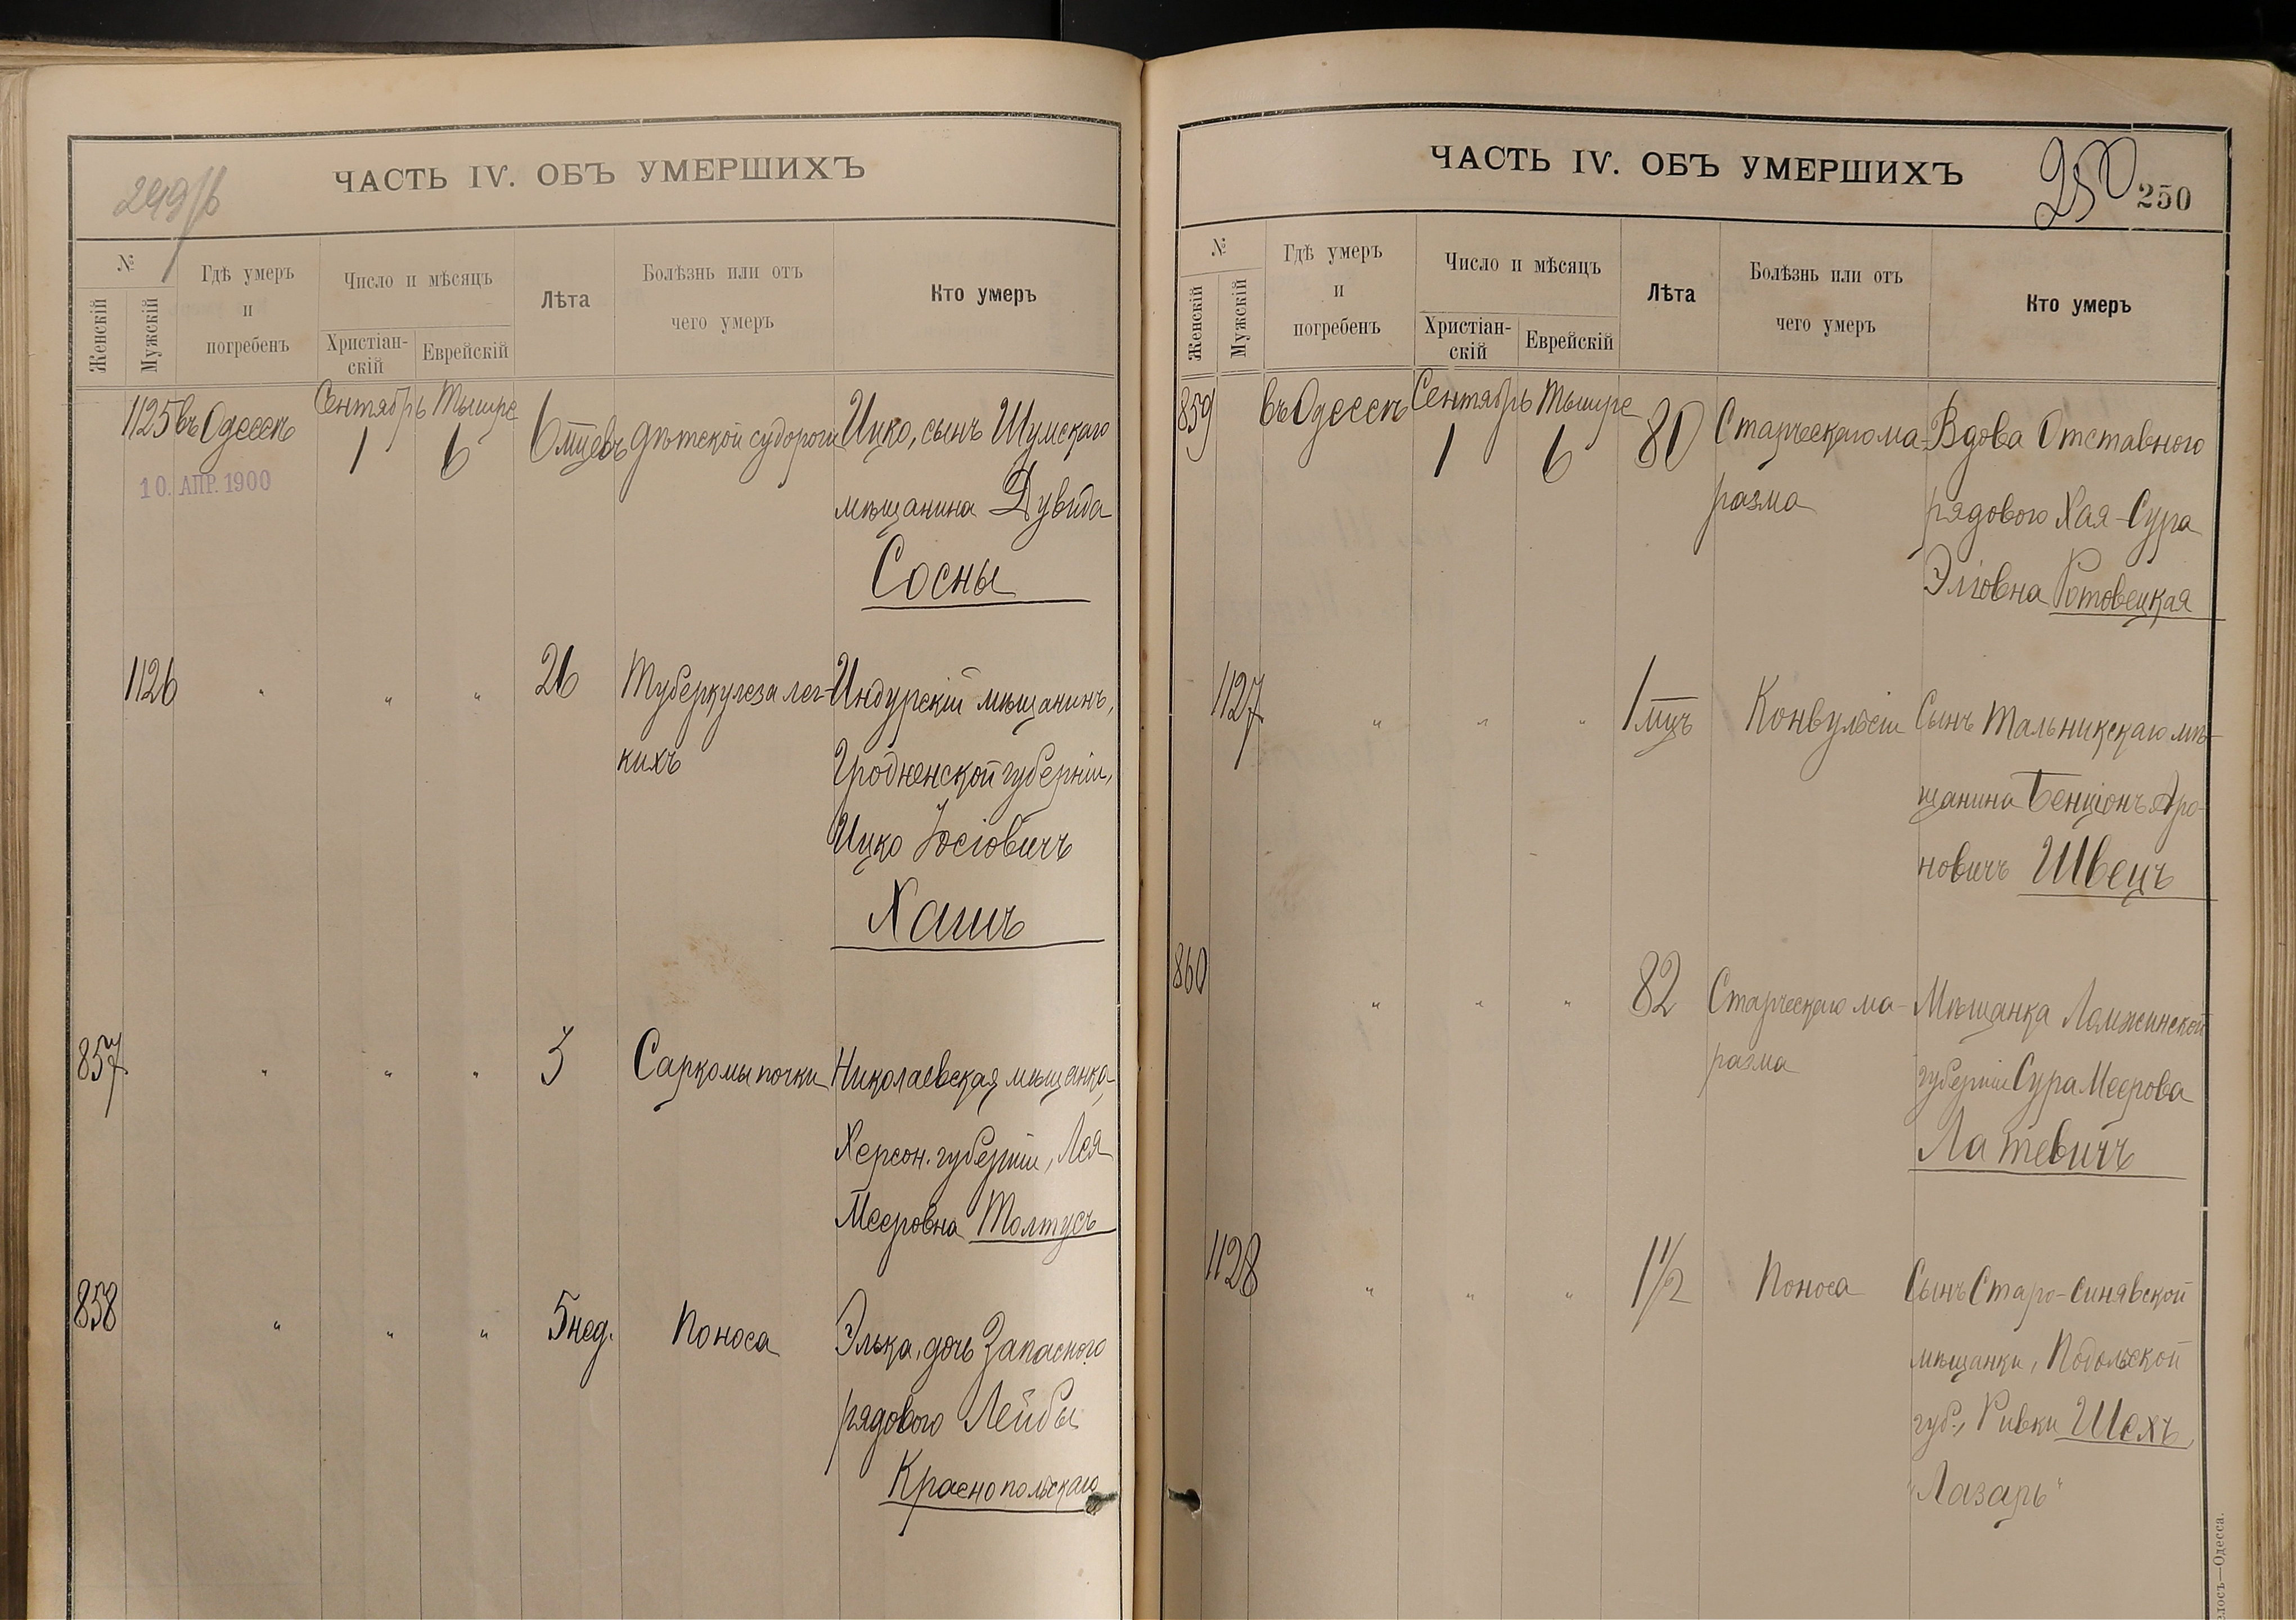 249/б
ЧАСТЬ IV. ОБЪ УМЕРШИХЪ
№
Женскій
Мужскій
Гдѣ умеръ
и
погребенъ
Число и мѣсяцъ
Христіан-
скій
Еврейскій
Лѣта
Болѣзнь или отъ
чего умеръ
Кто умеръ
1125 въ Одессѣ Сентябрь 1 Тышре 6 6 мцевъ дѣтской судороги Ицко, сынъ Шумскаго
10. АПР. 1900
мѣщанина Дувида
Сосны
1126 " " " 26 Туберкулеза лег- Индурскій мѣщанинъ,
кихъ Гродненской губерніи,
Ицко Іосіовичъ
Хашъ
857 " " " 3 Саркомы почки Николаевская мѣщанка
Херсон. губерніи, Лея
Мееровна Толтусъ
858 " " " 5 нед. Поноса Элька, дочь Запасного
рядового Лейбы
Краснопольскаго
ЧАСТЬ IV. ОБЪ УМЕРШИХЪ
250 250
№
Женскій
Мужскій
Гдѣ умеръ
и
погребенъ
Число и мѣсяцъ
Христіан-
скій
Еврейскій
Лѣта
Болѣзнь или отъ
чего умеръ
Кто умеръ
859 въ Одессѣ Сентябрь 1 Тышре 6 80 Старческаго ма- Вдова Отставного
разма рядового Хая-Сура
Эліовна Ротовецкая
1127 " " " 1 мцъ Конвульсіи Сынъ Тальникскаго мѣ-
щанина Бенціонъ Аро-
новичъ Швецъ
860 " " " 82 Старческаго ма- Мѣщанка Ломжинской
разма губерніи Сура Меерова
Латевичъ
1128 " " " 1 1/2 Поноса Сынъ Старо-синявской
мѣщанки, Подольской
губ., Ривки Шехъ,
"Лазарь"
Одесса.